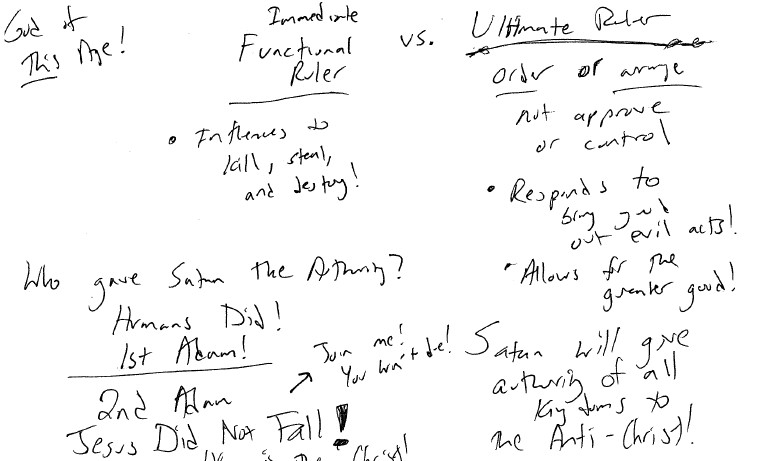 God of
This Age!
Immediate
Functional
Ruler
vs.
Ultimate Ruler
order or arrange
not approve
or control
• Influences to
kill, steal,
and destroy!
• Responds to
bring good
out evil acts!
• Allows for the
greater good!
Who gave Satan the Authority?
Humans Did!
1st Adam!
2nd Adam
Jesus Did Not Fall!
Join me!
You won't die!
Satan will give
authority of all
Kingdoms to
the Anti-Christ!
the Christ!